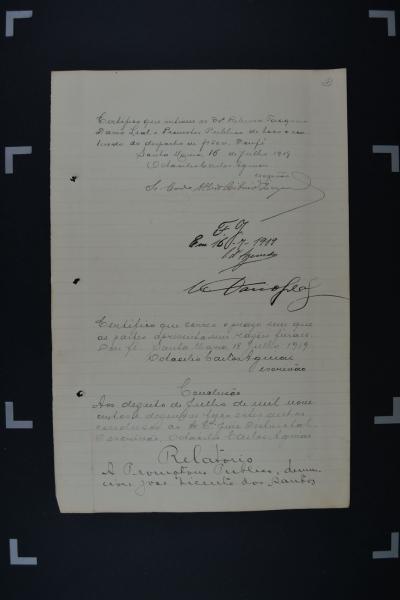 Certifico que intimei os Drs. Ribeiro
Dario Leal e Promotor Publico de todo o con
teudo do despacho de fls. Dou fé
Santa Maria, 16 de Julho 1919
Octacilio Carlos Aguiar
escrivão
Em 16-7-1919
Certifico que correu o prazo sem que
as partes apresentassem razões finaes.
Dou fé. Santa Maria 18 Julho 1919
Octacilio Carlos Aguiar
escrivão
Conclusão
Aos dezoito de Julho de mil nove
centos e dezenove faço estes autos
conclusão ao M. Dr. Juiz Districtal
O escrivão, Octacilio Carlos Aguiar
Relatorio
A Promotoria Publica, denun
ciou José Vicente dos Santos